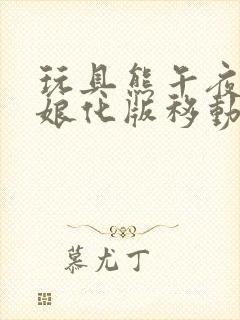 玩具熊午夜
娘化版移動
慕尤丁